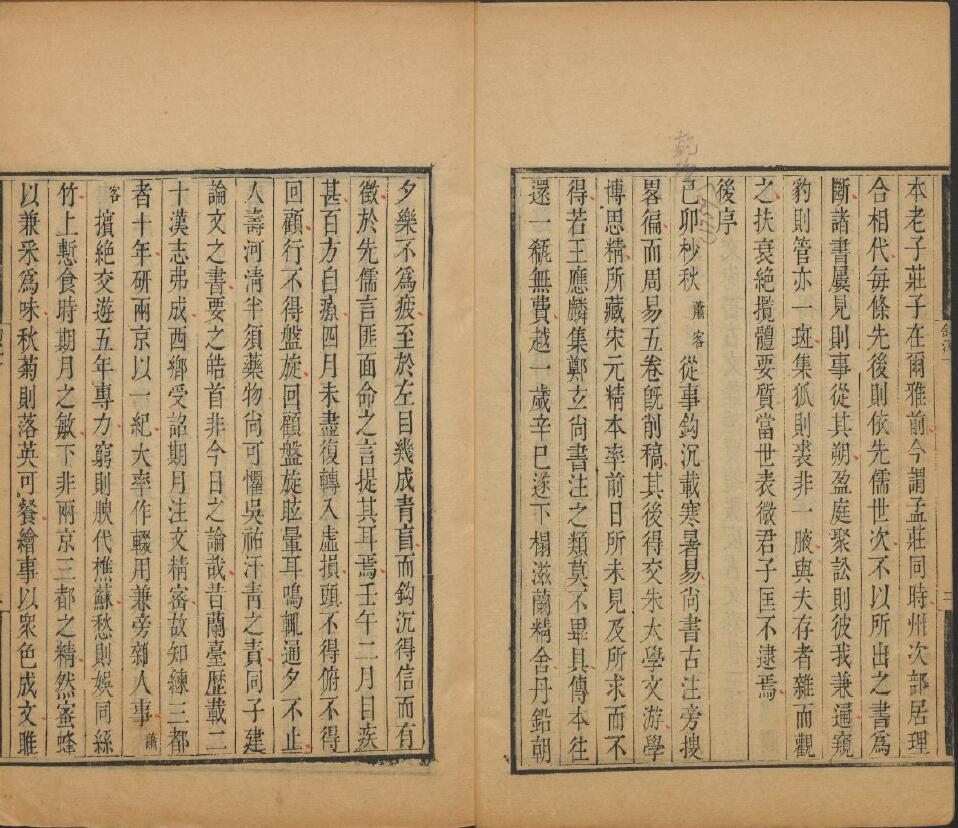 本老子莊子在爾雅前今謂孟莊同時州次部居理
合相代每條先後則依先儒世次不以所出之書爲
斷諸書屢見則事從其朔盈庭聚訟則彼我兼通窺
豹則管亦一斑集狐則裘非一腋與夫存者雜而觀
之扶衰絶攬體要質當世表徵君子匡不逮焉
後序
己卯杪秋蕭客從事鈎沉載寒暑易尙書古注旁搜
畧徧而周易五卷旣削稿其後得交朱太學文游學
博思精所藏宋元精本率前日所未見及所求而不
得若王應麟集鄭玄尙書注之類莫不畢具傳本往
還一瓻無費越一歲辛巳遂下榻滋蘭精舍丹鉛朝
夕樂不爲疲至於左目幾成靑盲而鈎沉得信而有
徵於先儒言匪面命之言提其耳焉壬午二月目疾
甚百方自療四月未盡復轉入虛損頭不得俯不得
回顧行不得盤旋回顧盤旋眩暈耳鳴輒通夕不止
人壽河淸半須藥物尙可懼吳祐汗靑之責同子建
論文之書要之皓首非今日之論哉昔蘭臺歷載二
十漢志弗成西鄉受詔期月注文精審故知練三都
者十年硏兩京以一紀大率作輟用兼旁雜人事蕭
客擯絶交遊五年專力窮則腴代樵蘇愁則娛同絲
竹上慙食時期月之敏下非兩京三都之精然蜜蜂
以兼采爲味秋菊則落英可餐繪事以衆色成文雎